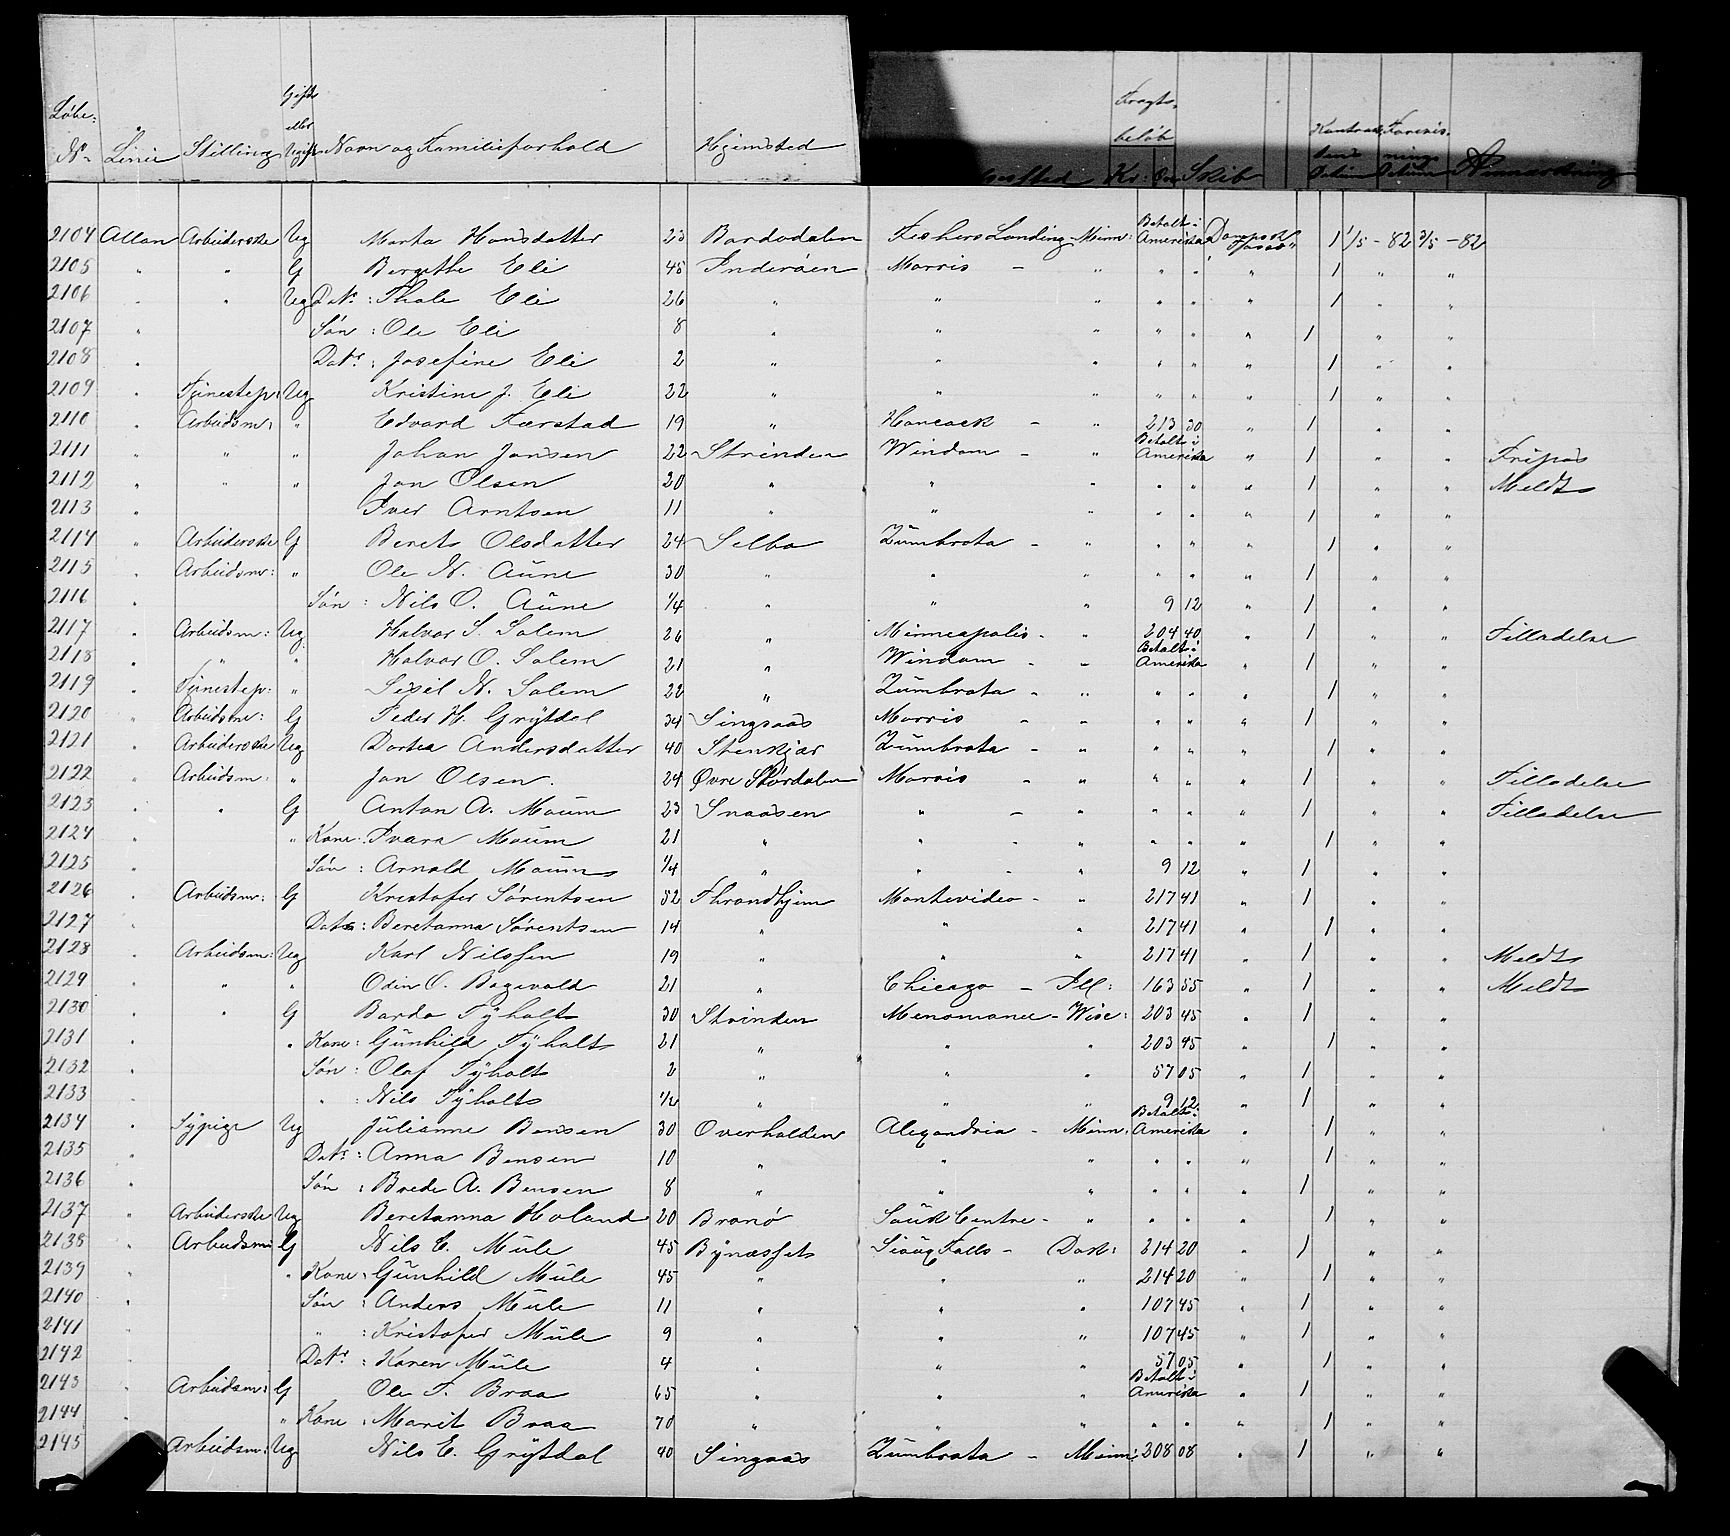 Løbe: N⁰ Linie Stilling Gift eller Ugift Navn og Familieforhold Hjemsted Fragtbeløb Kr: Øre Skib Anmærkning
2104 Allan Arbeiderske Ug Marta Hansdatter 23 Bardodalen Fishers Landing - Minn: Betalt i Amerika Dampsk. "Tasso" 1 1/5 - 82 3/5 - 82
2105 " " G Bergitte Eli 45 Inderøen Morris - " " " " 1 " "
2106 " " Ug Datr: Thale Eli 26 " " " " " " 1 " "
2107 " Søn: Ole Eli 8 " " " " " " 1 " "
2108 " Datr: Josefine Eli 2 " " " " " " 1 " "
2109 " Tjenestep: Ug Kristine J. Eli 22 " " " " " " 1 " "
2110 " Arbeidsm: " Edvard Færstad 19 " Hancock - " 213 30 " 1 " "
2111 " " " Johan Jansen 22 Strinden Windom - " Betalt i Amerika " 1 " " Fripas
2112 " " " Jon Olsen 20 " " " " " " 1 " " Meldt
2113 " Iver Arntsen 11 " " " " " " 1 " "
2114 " Arbeiderske G Beret Olsdatter 24 Selbo Zumbrota - " " " " 1 " "
2115 " Arbeidsm: " Ole N. Aune 30 " " " " " " 1 " "
2116 " Søn: Nils O. Aune 1/4 " " " 9 12 " 1 " "
2117 " Arbeidsm: Ug Halvor S. Solem 26 " Minneapolis - " 204 40 " 1 " " Tilladelse
2118 " " " Halvor O. Solem 21 " Windom - " Betalt i Amerika " 1 " "
2119 " Tjenestep: " Sesil N. Solem 22 " Zumbrota - " " " " 1 " "
2120 " Arbeidsm: G Peder H. Grytdal 34 Singsaas Morris - " " " " 1 " "
2121 " Arbeiderske Ug Dortea Andersdatter 40 Stenkjær Zumbrota - " " " " 1 " "
2122 " Arbeidsm: " Jon Olsen 24 Øvre Størdalen Morris - " " " " 1 " " Tilladelse
2123 " " G Anton A. Moum 23 Snaasen " - " " " " 1 " " Tilladelse
2124 " " Kone: Ivara Moum 21 " " - " " " " 1 " "
2125 " Søn: Arnold Moum 1/4 " " - " 9 12 " 1 " "
2126 " Arbeidsm: G Kristofer Sørentsen 52 Throndhjem Montevideo - " 217 41 " 1 " "
2127 " Datr: Beretanna Sørentsen 14 " " " 217 41 " 1 " "
2128 " Arbeidsm: Ug Karl Nilssen 19 " " " 217 41 " 1 " " Meldt
2129 " " " Odin O. Bagevold 21 " Chicago - Ill: 163 55 " 1 " " Meldt
2130 " " G Bardo Tyholt 30 Strinden Menomonee - Wisc: 203 45 " 1 " "
2131 " " Kone: Gunhild Tyholt 21 " " " 203 45 " 1 " "
2132 " Søn: Olaf Tyholt 2 " " " 57 05 " 1 " "
2133 " " : Nils Tyholt 1/2 " " " 9 12 " 1 " "
2134 " Sypige Ug Julianne Bensen 30 Overhalden Alexandria - Minn: Betalt i Amerika " 1 " "
2135 " Datr: Anna Bensen 10 " " " " " " 1 " "
2136 " Søn: Brede A. Bensen 8 " " " " " " 1 " "
2137 " Arbeiderske Ug Beretanna Holand 20 Brønø Sauk Centre - " " " " 1 " "
2138 " Arbeidsm: G Nils C. Mule 45 Bynæsset Sioux Falls - Dak: 214 20 " 1 " "
2139 " " Kone: Gunhild Mule 45 " " " 214 20 " 1 " "
2140 " Søn: Anders Mule 11 " " " 107 45 " 1 " "
2141 " " : Kristofer Mule 9 " " " 107 45 " 1 " "
2142 " Datr: Karen Mule 4 " " " 57 05 " 1 " "
2143 " Arbeidsm: G Ole T. Braa 65 " " " Betalt i Amerika " 1 " "
2144 " " Kone: Marit Braa 70 " " " " " " 1 " "
2145 Arbeidsm: Ug Nils E. Grytdal 40 Singsaas Zumbrota - Minn: 208 08 " 1 " "